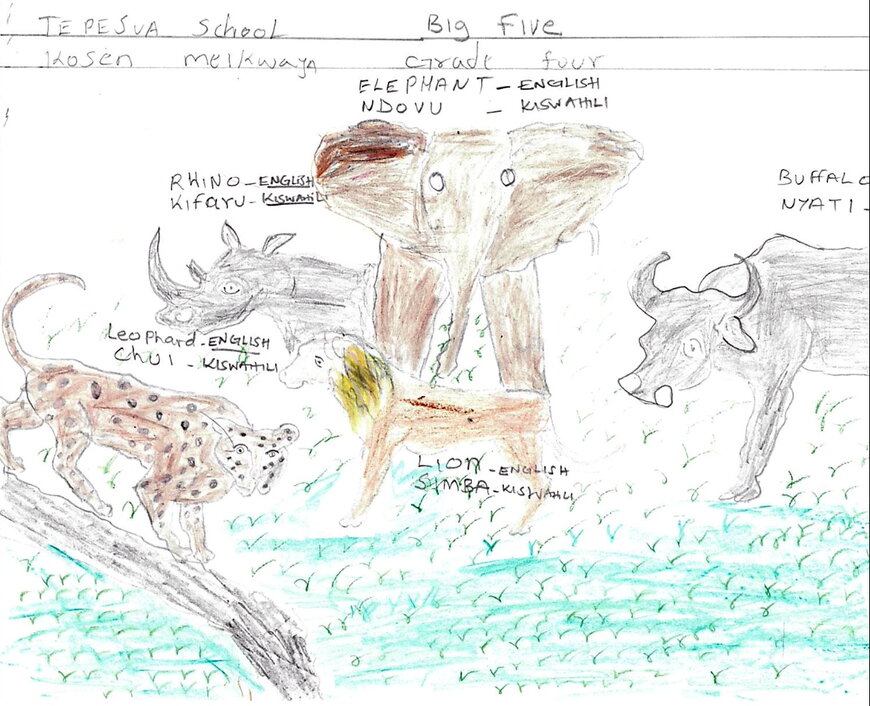 TEPESUA School Big Five
Kosen meikwaya Grade four
ELEPHANT - ENGLISH
NDOVU - KISWAHILI
RHINO - ENGLISH
Kifaru - KISWAHILI
BUFFALO
NYATI -
Leophard - ENGLISH
CHUI - KISWAHILI
LION - ENGLISH
SIMBA - KISWAHILI